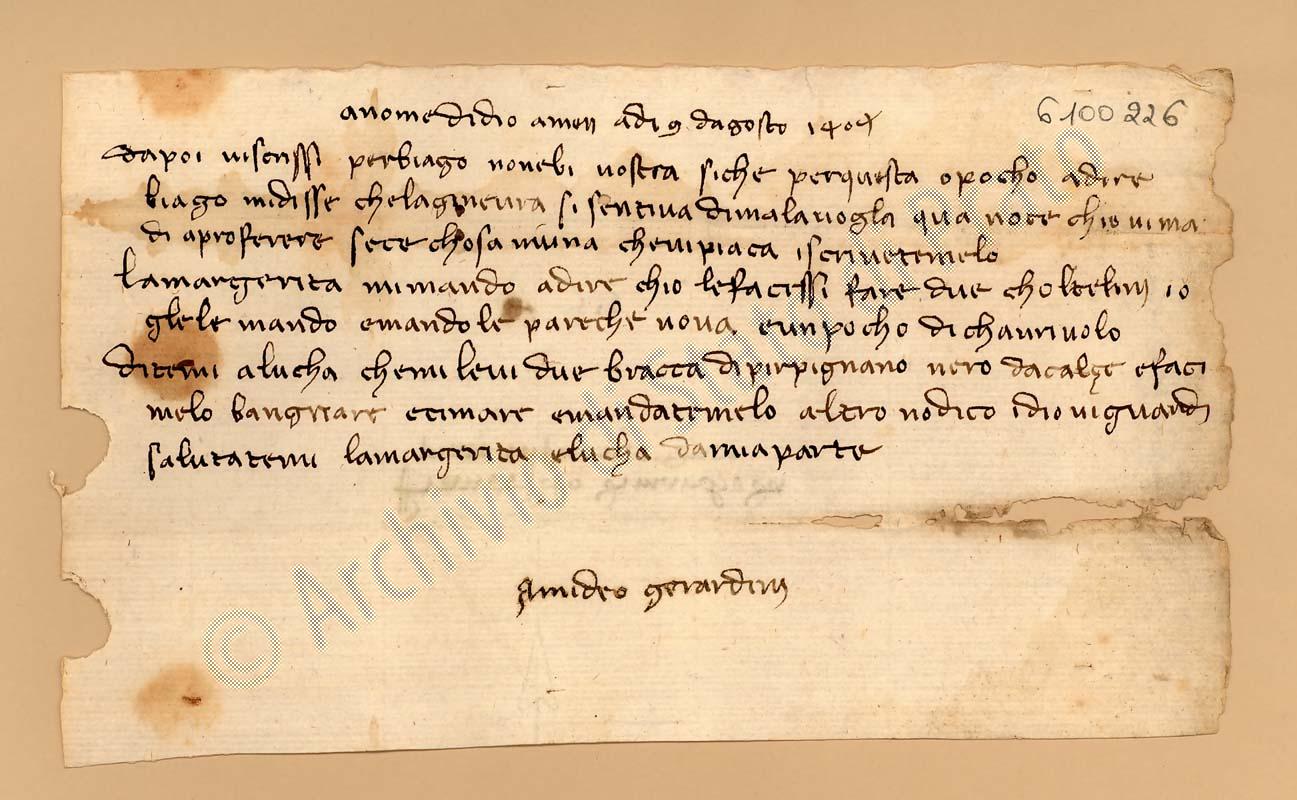 6100226
a nome di dio amen adi 9 dagosto 1404
dapoi viscrissi perbiago nonebi vostra siche perquesta opocho adire
biago midisse chelaginevra sisentiva dimalavogla qua noce chio vima
di aproferere sece chosa niuna chevipiaca iscrivetemelo
lamargerita mimando adire chio lefacessi fare due choltelini io
glele mando emandole pareche nova eunpocho dichavrivolo
ditemi alucha chemi levi due bracca dipirpignano nero dacalçe efaci
melo bangniare ecimare emandatemelo altro nodico idio viguardi
salutatemi lamargerita elucha damiaparte
Amideo gerardini
© Archivio di Stato di Prato